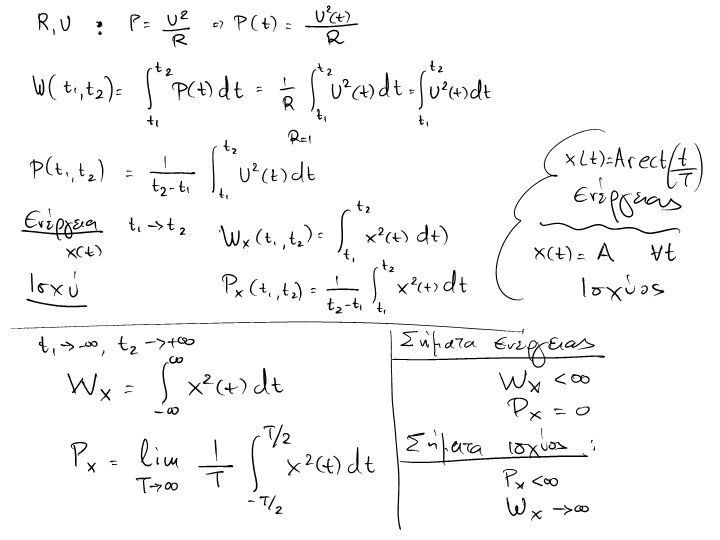 R, U : P = U²/R ⇒ P(t) = U²(t)/R
W(t₁,t₂) = ∫_{t₁}^{t₂} P(t) dt = 1/R ∫_{t₁}^{t₂} U²(t) dt = ∫_{t₁}^{t₂} U²(t) dt
R=1
P(t₁,t₂) = 1/(t₂-t₁) ∫_{t₁}^{t₂} U²(t) dt
Ενέργεια t₁ → t₂ W_x(t₁,t₂) = ∫_{t₁}^{t₂} x²(t) dt)
x(t)
Ισχύ P_x(t₁,t₂) = 1/(t₂-t₁) ∫_{t₁}^{t₂} x²(t) dt
x(t) = A rect(t/T)
Ενέργειας
x(t) = A ∀t
Ισχύος
t₁ → -∞, t₂ → +∞
W_x = ∫_{-∞}^{∞} x²(t) dt
P_x = lim_{T→∞} 1/T ∫_{-T/2}^{T/2} x²(t) dt
Σήματα Ενέργειας
W_x < ∞
P_x = 0
Σήματα ισχύος :
P_x < ∞
W_x → ∞